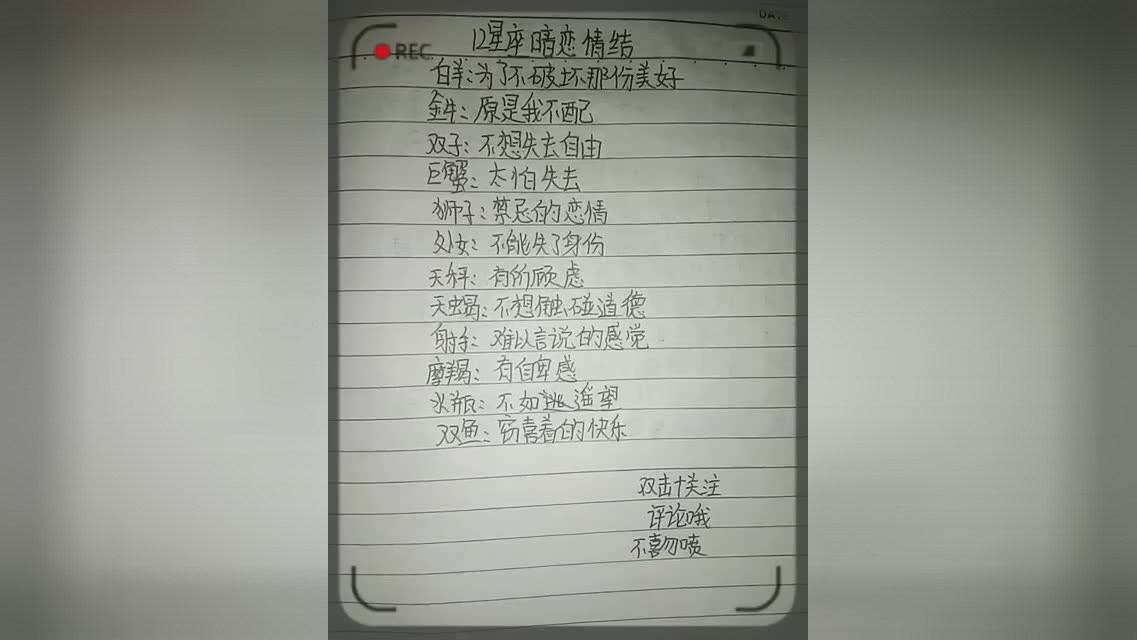 DA
REC
12星座暗恋情结
白羊:为了不破坏那份美好
金牛:原是我不配
双子:不想失去自由
巨蟹:太怕失去
狮子:禁忌的恋情
处女:不能失了身份
天秤:有所顾虑
天蝎:不想触碰道德
射手:难以言说的感觉
摩羯:有自卑感
水瓶:不如遥望
双鱼:窃喜着的快乐
双击+关注
评论哦
不喜勿喷